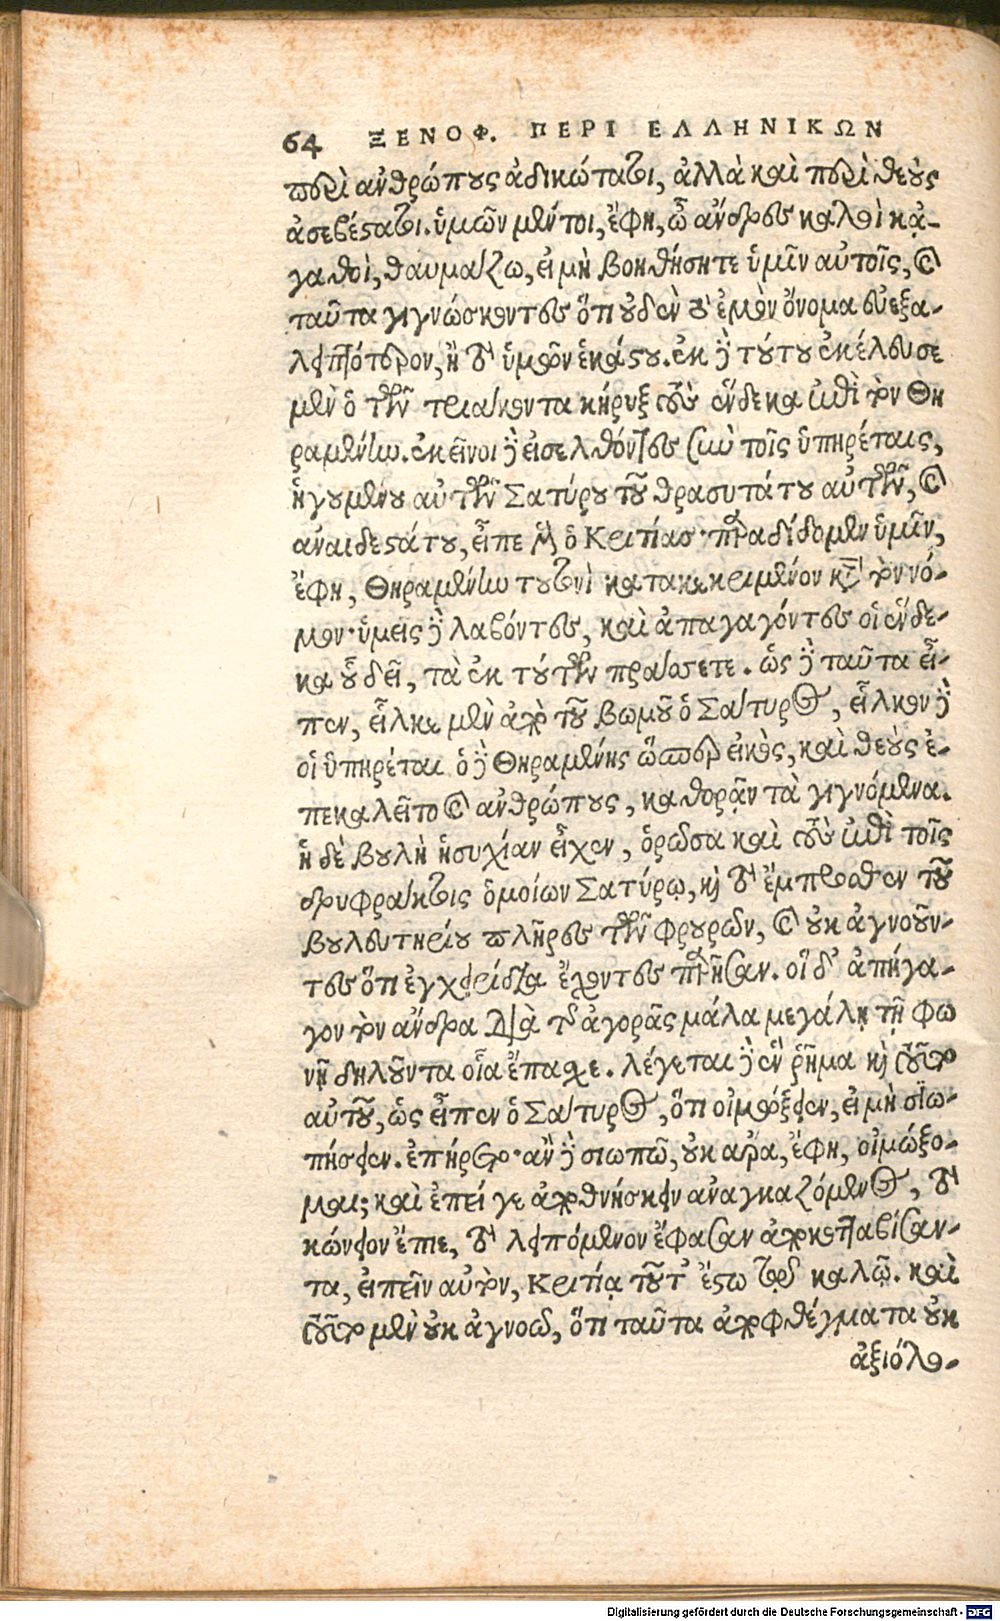 64 ΞΕΝΟΦ. ΠΕΡΙ ΕΛΛΗΝΙΚΩΝ
περὶ ἀνθρώπους ἀδικώτατοι, ἀλλὰ καὶ περὶ θεοὺς
ἀσεβέστατοι. ὑμῶν μέντοι, ἔφη, ὦ ἄνδρες καλοὶ κᾀ-
γαθοὶ, θαυμάζω, εἰ μὴ βοηθήσητε ὑμῖν αὐτοῖς, καὶ
ταῦτα γιγνώσκοντες ὅτι οὐδὲν τὸ ἐμὸν ὄνομα εὐεξα-
λειπτότερον, ἢ τὸ ὑμῶν ἑκάστου. ἐκ δὲ τούτου ἐκέλευσε
μὲν ὁ τῶν τριάκοντα κήρυξ τοὺς ἕνδεκα ἐπὶ τὸν Θη
ραμένην. ἐκεῖνοι δὲ εἰσελθόντες σὺν τοῖς ὑπηρέταις,
ἡγουμένου αὐτῶν Σατύρου τοῦ θρασυτάτου αὐτῶν, καὶ
ἀναιδεστάτου, εἶπε μὲν ὁ Κριτίας· παραδίδομεν ὑμῖν,
ἔφη, Θηραμένην τουτονὶ κατακεκριμένον κατὰ τὸν νό-
μον· ὑμεῖς δὲ λαβόντες, καὶ ἀπαγαγόντες οἱ ἕνδε-
κα οὗ δεῖ, τὰ ἐκ τούτων πράσσετε. ὡς δὲ ταῦτα εἶ-
πεν, εἷλκε μὲν ἀπὸ τοῦ βωμοῦ ὁ Σάτυρος, εἷλκον δὲ
οἱ ὑπηρέται ὁ δὲ Θηραμένης ὥσπερ εἰκὸς, καὶ θεοὺς ἐ-
πεκαλεῖτο καὶ ἀνθρώπους, καθορᾷν τὰ γιγνόμενα.
ἡ δὲ βουλὴ ἡσυχίαν εἶχεν, ὁρῶσα καὶ τοὺς ἐπὶ τοῖς
δρυφράκτοις ὁμοίων Σατύρῳ, καὶ τὸ ἔμπροσθεν τοῦ
βουλευτηρίου πλῆρες τῶν φρουρῶν, καὶ οὐκ ἀγνοοῦν-
τες ὅτι ἐγχειρίδια ἔχοντες παρῆσαν. οἱ δ' ἀπήγα-
γον τὸν ἄνδρα διὰ τῆς ἀγορᾶς μάλα μεγάλῃ τῇ φω
νῇ δηλοῦντα οἷα ἔπασχε. λέγεται δὲ ἓν ῥῆμα καὶ τοῦτο
αὐτοῦ, ὡς εἶπεν ὁ Σάτυρος, ὅτι οἰμώξειεν, εἰ μὴ σιω-
πήσειεν. ἐπήρετο· ἂν δὲ σιωπῶ, οὐκ ἄρα, ἔφη, οἰμώξο-
μαι; καὶ ἐπεί γε ἀποθνήσκειν ἀναγκαζόμενος, τὸ
κώνειον ἔπιε, τὸ λειπόμενον ἔφασαν ἀποκοτταβίσαν-
τα, εἰπεῖν αὐτὸν, Κριτίᾳ τοῦτ' ἔστω τῷ καλῷ. καὶ
τοῦτο μὲν οὐκ ἀγνοῶ, ὅτι ταῦτα ἀποφθέγματα οὐκ
ἀξιόλο-
Digitalisierung gefördert durch die Deutsche Forschungsgemeinschaft - DFG